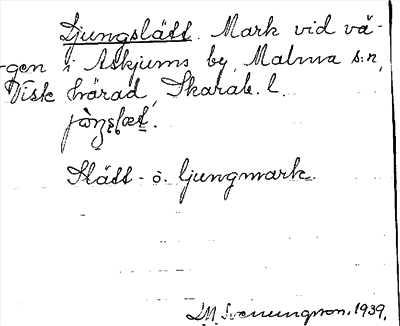 Ljungslätt. Mark vid vä-
gen i Askjums by, Malma s:n,
Visk härad, Skarab. l.
Slätt- o. ljungmark.
L M. Svenungsson. 1939.